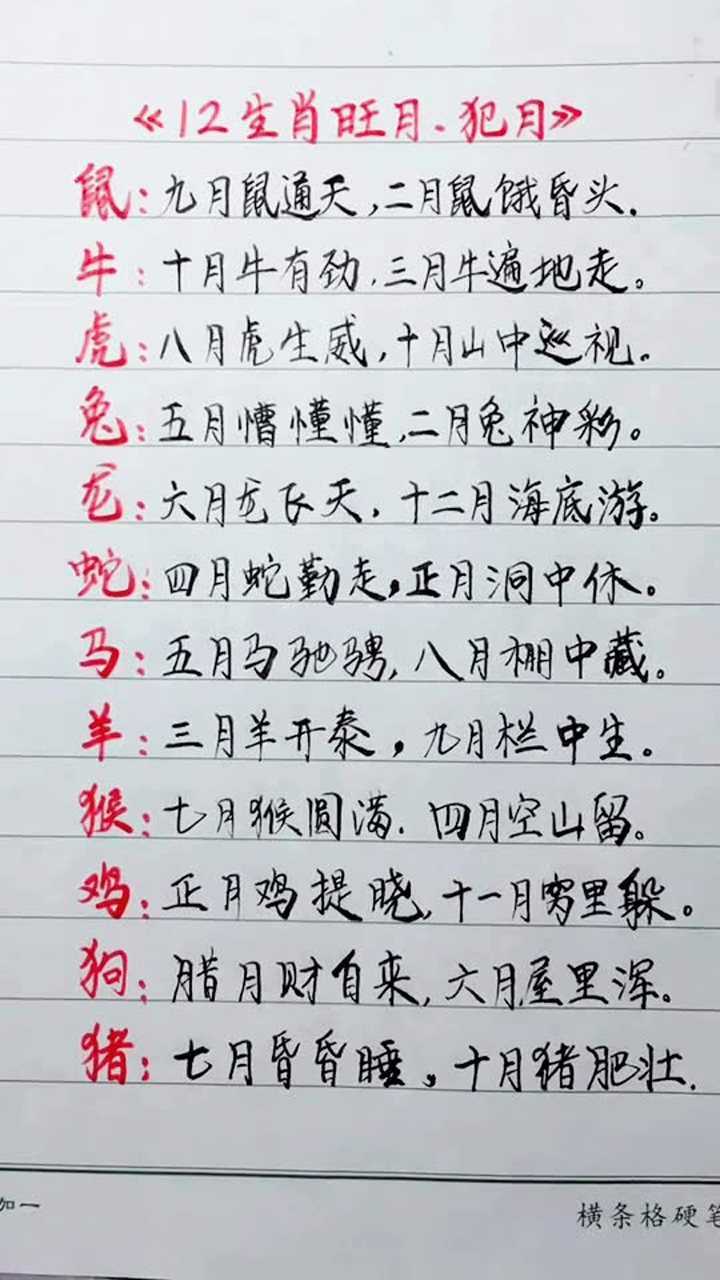 《12生肖旺月.犯月》
鼠:九月鼠通天,二月鼠饿昏头.
牛:十月牛有劲,三月牛遍地走。
虎:八月虎生威,十月山中巡视。
兔:五月懵懂懂,二月兔神彩。
龙:六月龙飞天,十二月海底游。
蛇:四月蛇勤走,正月洞中休。
马:五月马驰骋,八月棚中藏。
羊:三月羊开泰,九月栏中生。
猴:七月猴圆满.四月空山留。
鸡:正月鸡提晓,十一月窝里躲。
狗:腊月财自来,六月屋里浑。
猪:七月昏昏睡,十月猪肥壮.
加一
横条格硬笔